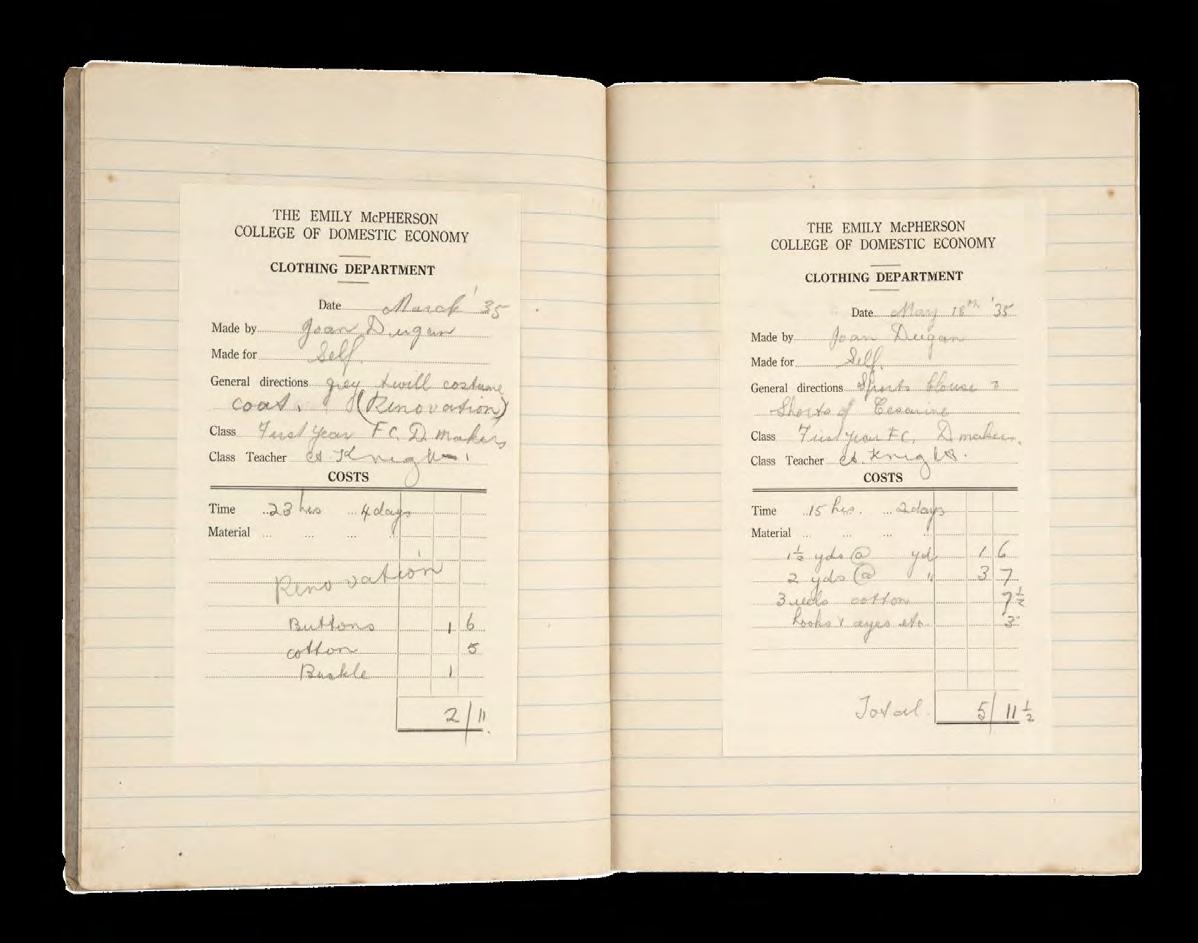 THE EMILY McPHERSON
COLLEGE OF DOMESTIC ECONOMY
CLOTHING DEPARTMENT
Date March '35
Made by Joan Dugan
Made for Self.
General directions grey twill costume
coat. (Renovation)
Class First Year F.C. D. makers
Class Teacher A. Knight
COSTS
Time 23 hrs 4 days
Material
Renovation
Buttons 1 6
cotton 5
Buckle 1
2/11.
THE EMILY McPHERSON
COLLEGE OF DOMESTIC ECONOMY
CLOTHING DEPARTMENT
Date May 18th '35
Made by Joan Dugan
Made for Self.
General directions Sports blouse &
Shorts of Cesarine
Class First year F.C. D makers.
Class Teacher A. Knight.
COSTS
Time 15 hrs. 2 days
Material
1½ yds @ yd 1 6
2 yds @ " 3 7
3 reels cotton 7½
hooks & eyes etc. 3
Total 5/11½